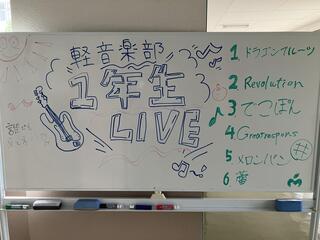 軽音楽部
1年生
LIVE
1 ドラゴンフルーツ
2 Revolution
3 でこぽん
4 Greatrespons
5 メロンパン
6 蕾